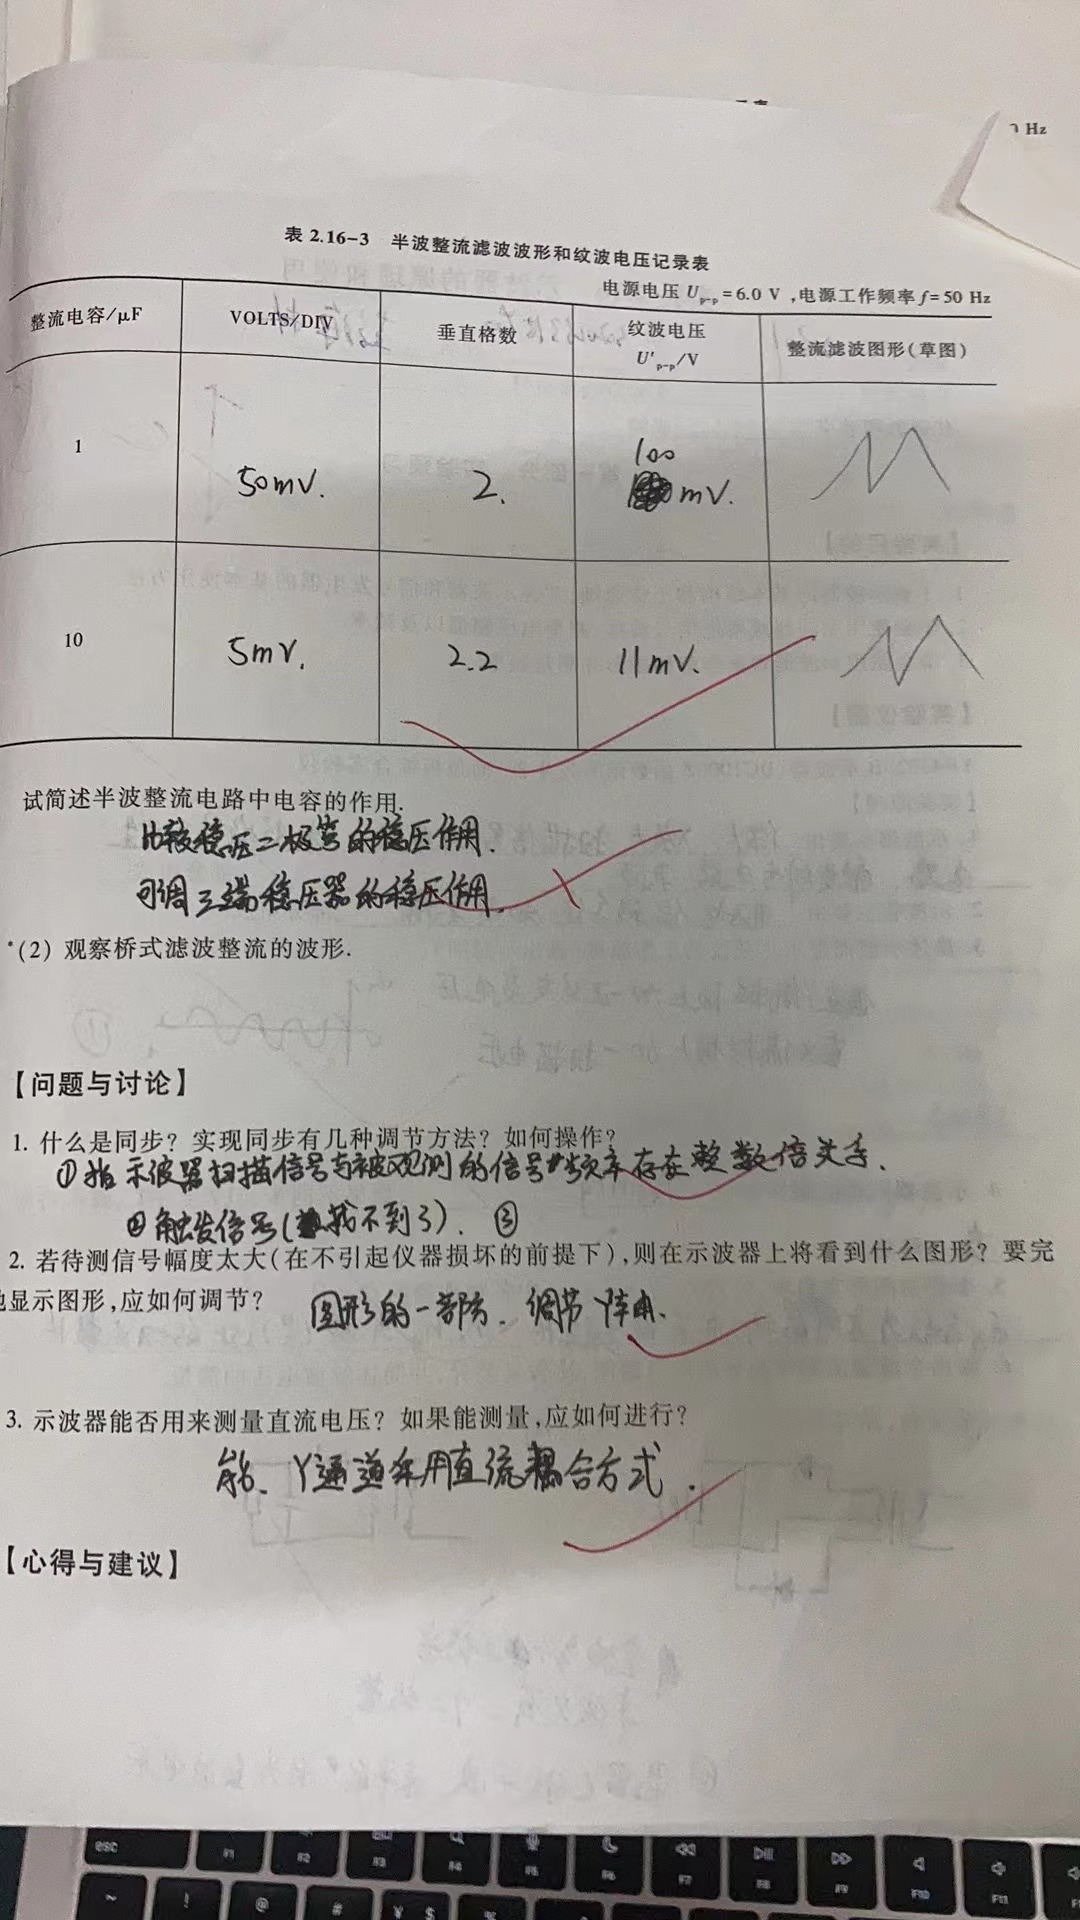 0 Hz
表 2.16-3 半波整流滤波波形和纹波电压记录表
电源电压 Up-p=6.0 V ,电源工作频率 f=50 Hz
整流电容/μF VOLTS/DIV 垂直格数 纹波电压 U'p-p/V 整流滤波图形(草图)
1 50mV. 2. 100 mV.
10 5mV. 2.2 11mV.
试简述半波整流电路中电容的作用.
比较稳压二极管的稳压作用.
可调三端稳压器的稳压作用.
*(2) 观察桥式滤波整流的波形.
【问题与讨论】
1. 什么是同步? 实现同步有几种调节方法? 如何操作?
①指示波器扫描信号与被观测的信号频率存在整数倍关系.
②触发信号(找不到了). ③
2. 若待测信号幅度太大(在不引起仪器损坏的前提下),则在示波器上将看到什么图形? 要完
地显示图形,应如何调节?
图形的一部分. 调节Y
3. 示波器能否用来测量直流电压? 如果能测量,应如何进行?
能、Y通道采用直流耦合方式.
【心得与建议】
esc F1 F2 F3 F4 F5 F6 F7 F8 F9 F10 F11
~ ! @ # ¥ $ %